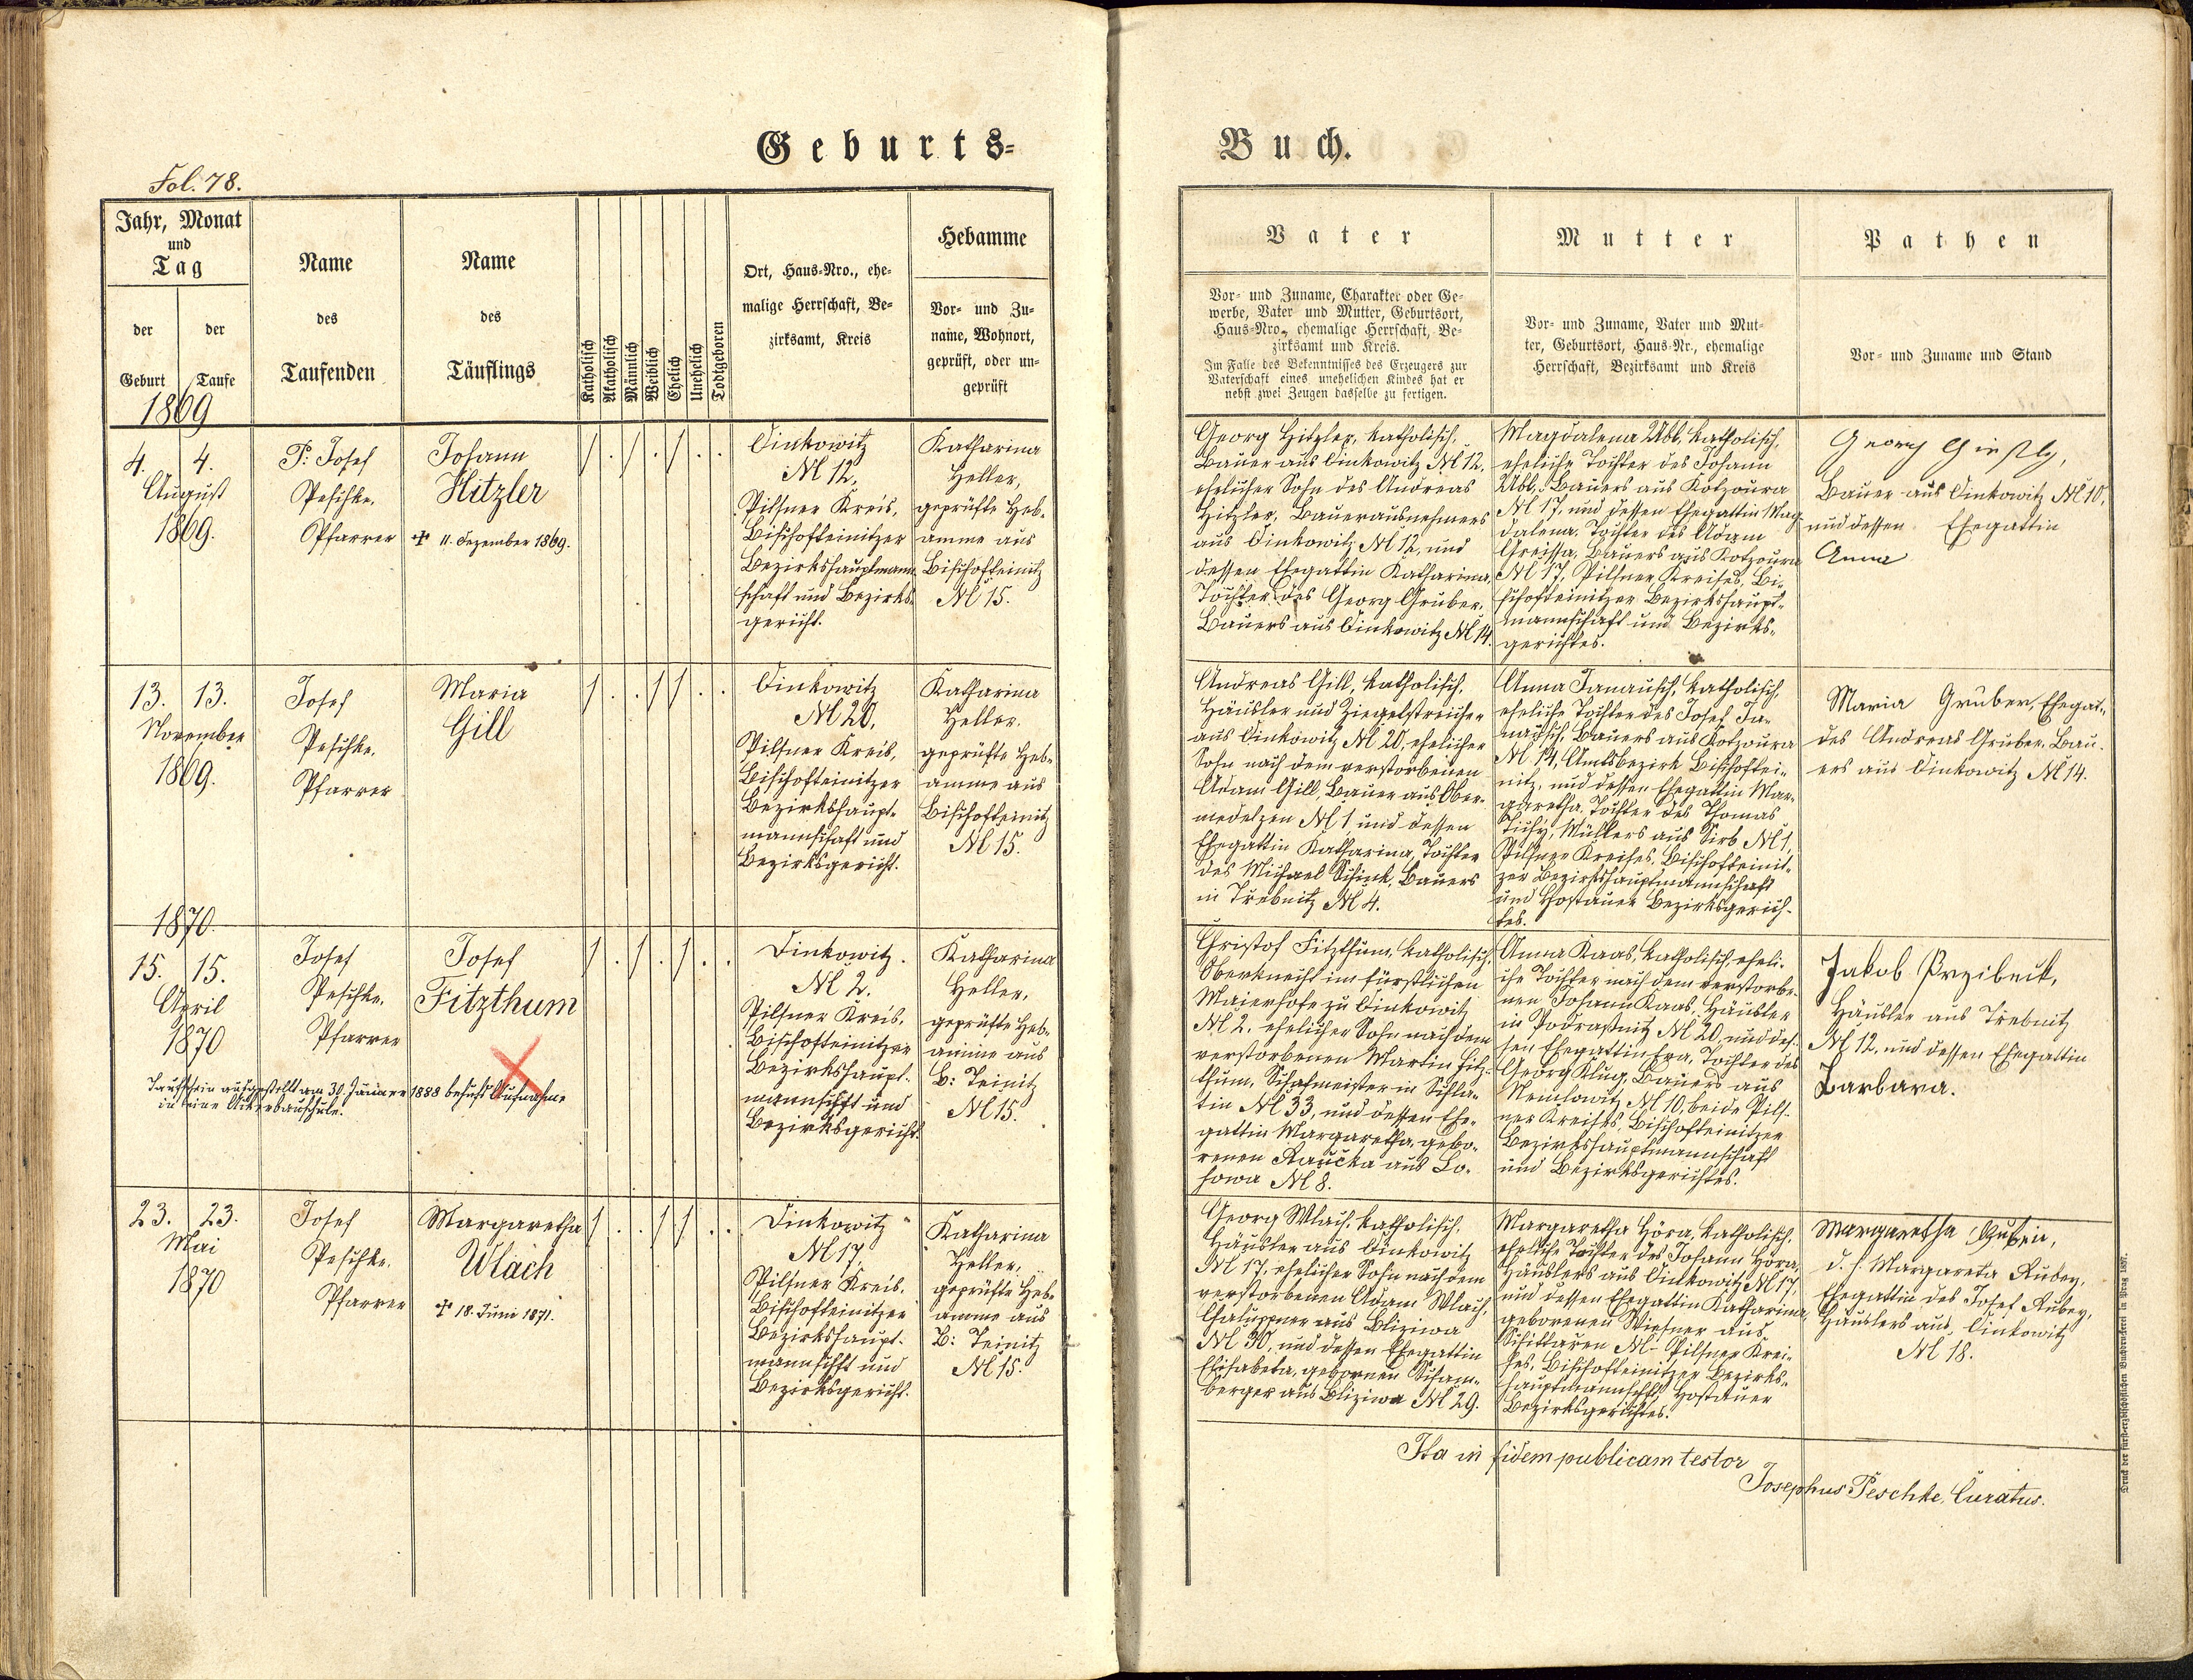 Geburts-
Buch.
Fol. 78.
Jahr, Monat
und
Tag
der
Geburt
der
Taufe
Name
des
Taufenden
Name
des
Täuflings
Katholisch
Akatholisch
Männlich
Weiblich
Ehelich
Unehelich
Todtgeboren
Ort, Haus-Nro., ehe-
malige Herrschaft, Be-
zirksamt, Kreis
Hebamme
Vor- und Zu-
name, Wohnort,
geprüft, oder un-
geprüft
Vater
Vor- und Zuname, Charakter oder Ge-
werbe, Vater und Mutter, Geburtsort,
Haus-Nro., ehemalige Herrschaft, Be-
zirksamt und Kreis.
Im Falle des Bekenntnisses des Erzeugers zur
Vaterschaft eines unehelichen Kindes hat er
nebst zwei Zeugen dasselbe zu fertigen.
Mutter
Vor- und Zuname, Vater und Mut-
ter, Geburtsort, Haus-Nr., ehemalige
Herrschaft, Bezirksamt und Kreis
Pathen
Vor- und Zuname und Stand
1869
4. 4.
August
1869.
P: Josef
Peschke,
Pfarrer
Johann
Hitzler
✠ 11. Dezember 1869.
Dinkowitz
№ 12,
Pilsner Kreis,
Bischofteinitzer
Bezirkshauptmann-
schaft und Bezirks-
gericht.
Katharina
Heller,
geprüfte Heb-
amme aus
Bischofteinitz
№ 15.
Georg Hitzler, katholisch,
Bauer aus Dinkowitz № 12,
ehelicher Sohn des Andreas
Hitzler, Bauerausnehmers
aus Dinkowitz № 12, und
dessen Ehegattin Katharina,
Tochter des Georg Gruber,
Bauers aus Dinkowitz № 14.
Magdalena Abb, katholisch,
eheliche Tochter des Johann
Abb, Bauers aus Kotzoura
№ 17, und dessen Ehegattin Mag-
dalena, Tochter des Adam
Bauers aus Kotzoura
№ 17, Pilsner Kreises, Bi-
schofteinitzer Bezirkshaupt-
mannschaft und Bezirks-
gerichtes.
Georg
Bauer aus Dinkowitz № 10,
und dessen Ehegattin
Anna
13. 13.
November
1869.
Josef
Peschke,
Pfarrer
Maria
Gill
Dinkowitz
№ 20,
Pilsner Kreis,
Bischofteinitzer
Bezirkshaupt-
mannschaft und
Bezirksgericht.
Katharina
Heller,
geprüfte Heb-
amme aus
Bischofteinitz
№ 15.
Andreas Gill, katholisch,
Häusler und Ziegelstreicher
aus Dinkowitz № 20, ehelicher
Sohn nach dem verstorbenen
Adam Gill, Bauer aus Ober-
medelzen № 1, und dessen
Ehegattin Katharina, Tochter
des Michael Schink, Bauers
in Trebnitz № 4.
Anna Janausch, katholisch,
eheliche Tochter des Josef Ja-
nausch, Bauers aus Kotzoura
№ 14, Amtsbezirk Bischoftei-
nitz, und dessen Ehegattin Mar-
garetha, Tochter des Thomas
Müllers aus Sirb № 1,
Pilsner Kreises, Bischofteinit-
zer Bezirkshauptmannschaft
und Hostauer Bezirksgerich-
tes.
Maria Gruber, Ehegat-
des Andreas Gruber, Bau-
ers aus Dinkowitz № 14.
1870.
15. 15.
April
1870
Josef
Peschke,
Pfarrer
Josef
Fitzthum
Taufschein ausgestellt am 30. Jänner 1888 behufs Aufnahme
in eine Ackerbauschule.
Dinkowitz.
№ 2.
Pilsner Kreis,
Bischofteinitzer
Bezirkshaupt-
mannschft und
Bezirksgericht.
Katharina
Heller,
geprüfte Heb-
amme aus
B: Teinitz
№ 15.
Christof Fitzthum, katholisch,
Oberknecht im fürstlichen
Maierhofe zu Dinkowitz
№ 2, ehelicher Sohn nach dem
verstorbenen Martin Fitz-
thum, Schafmeister in Schla-
tin № 33, und dessen Ehe-
gattin Margaretha, gebo-
renen Raučka aus Lo-
howa № 8.
Anna Kaas, katholisch, eheli-
che Tochter nach dem verstorbe-
nen Johann Kaas, Häusler
in Podrassnitz № 20, und des-
sen Ehegattin Eva, Tochter des
Georg Klug, Bauers aus
Nemlowitz № 10, beide Pils-
ner Kreises, Bischofteinitzer
Bezirkshauptmannschaft
und Bezirksgerichtes.
Jakob Przibeck,
Häusler aus Trebnitz
№ 12, und dessen Ehegattin
Barbara.
23. 23.
Mai
1870
Josef
Peschke,
Pfarrer
Margaretha
Wlach
✠ 18. Juni 1871.
Dinkowitz
№ 17,
Pilsner Kreis,
Bischofteinitzer
Bezirkshaupt-
mannschft und
Bezirksgericht.
Katharina
Heller,
geprüfte Heb-
amme aus
B: Teinitz
№ 15.
Georg Wlach, katholisch,
Häusler aus Dinkowitz
№ 17, ehelicher Sohn nach dem
verstorbenen Adam Wlach,
Chaluppner aus Bliziwa
№ 30, und dessen Ehegattin
Elisabeta, gebornen Scham-
berger aus Bliziwa № 29.
Margaretha Höra, katholisch,
eheliche Tochter des Johann Höra,
Häuslers aus Dinkowitz № 17,
und dessen Ehegattin Katharina,
geborenen Wiesner aus
Schittaren № – Pilsner Krei-
ses, Bischofteinitzer Bezirks-
hauptmannschft, Hostauer
Bezirksgerichtes.
Margaretha
d. h. Margareta Rubey,
Ehegattin des Josef Rubey,
Häuslers aus Dinkowitz
№ 18.
Ita in fidem publicam testor
Josephus Peschke, Curatus.
Druck der fürsterzbischöflichen Buchdruckerei in Prag 1857.